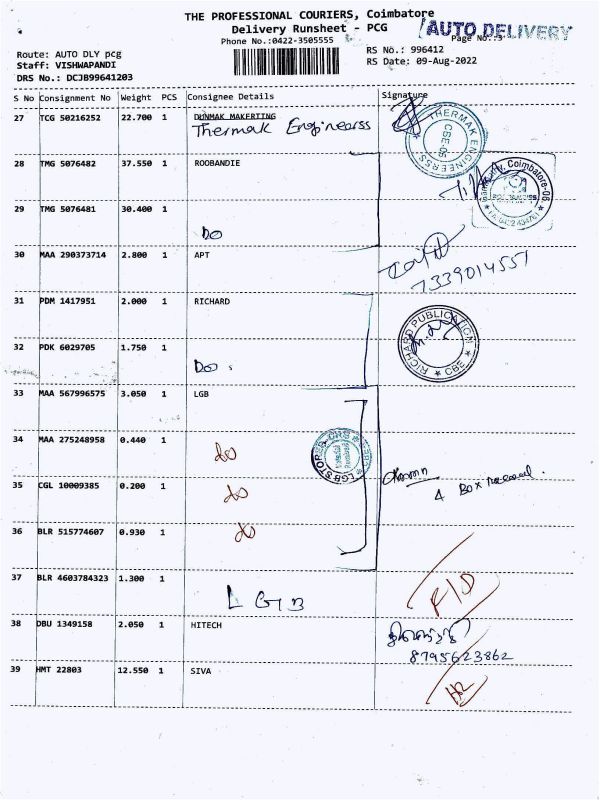 THE PROFESSIONAL COURIERS, Coimbatore
Delivery Runsheet - PCG
AUTO DELIVERY
Phone No.:0422-3505555
Page No.:3
Route: AUTO DLY pcg
RS No.: 996412
Staff: VISHWAPANDI
RS Date: 09-Aug-2022
DRS No.: DCJB99641203
S No Consignment No Weight PCS Consignee Details Signature
27 TCG 50216252 22.700 1 DUNMAK MAKERTING
Thermak Engineerss
THERMAK ENGINEERSS
CBE-06
28 TMG 5076482 37.550 1 ROOBANDIE
Coimbatore-06
29 TMG 5076481 30.400 1
Do
30 MAA 290373714 2.800 1 APT
7339014557
31 PDM 1417951 2.000 1 RICHARD
RICHARD PUBLICATION
CBE
32 PDK 6029705 1.750 1
Do.
33 MAA 567996575 3.050 1 LGB
34 MAA 275248958 0.440 1
do
LGB STORED
35 CGL 10009385 0.200 1
do
4 Box received.
36 BLR 515774607 0.930 1
do
37 BLR 4603784323 1.300 1
LGB
F/D
38 DBU 1349158 2.050 1 HITECH
8795623862
39 HMT 22803 12.550 1 SIVA